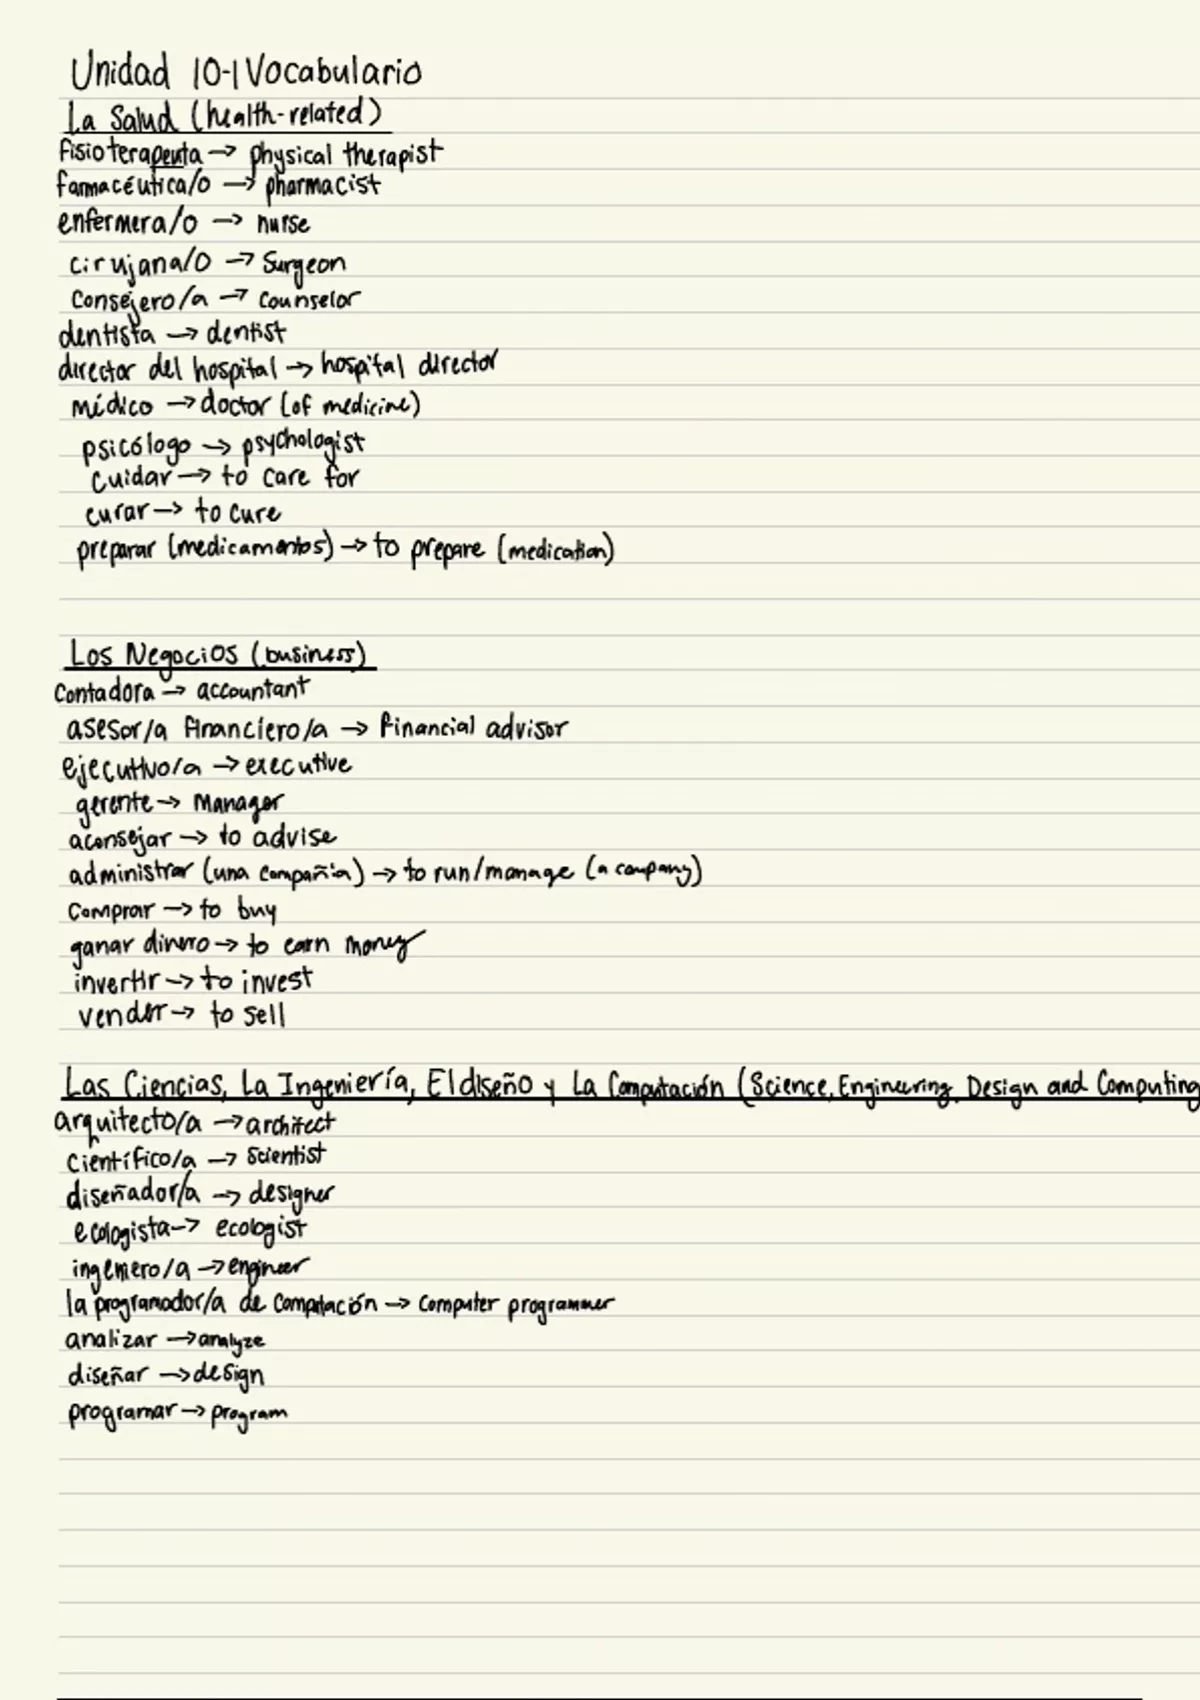 Unidad 10-1 Vocabulario
La Salud (health-related)
fisioterapeuta → physical therapist
farmacéutica/o → pharmacist
enfermera/o → nurse
cirujana/o → Surgeon
Consejero/a → Counselor
dentista → dentist
director del hospital → hospital director
médico → doctor (of medicine)
psicólogo → psychologist
cuidar → to care for
curar → to cure
preparar (medicamentos) → to prepare (medication)
Los Negocios (business)
Contadora → accountant
asesor/a financiero/a → financial advisor
ejecutivo/a → executive
gerente → Manager
aconsejar → to advise
administrar (una compañia) → to run/manage (a company)
Comprar → to buy
ganar dinero → to earn money
invertir → to invest
vender → to sell
Las Ciencias, La Ingeniería, El diseño y La Computación (Science, Engineering, Design and Computing
arquitecto/a → architect
Científico/a → Scientist
diseñador/a → designer
ecologista → ecologist
ingeniero/a → engineer
la programador/a de Computación → Computer programmer
analizar → analyze
diseñar → design
programar → program